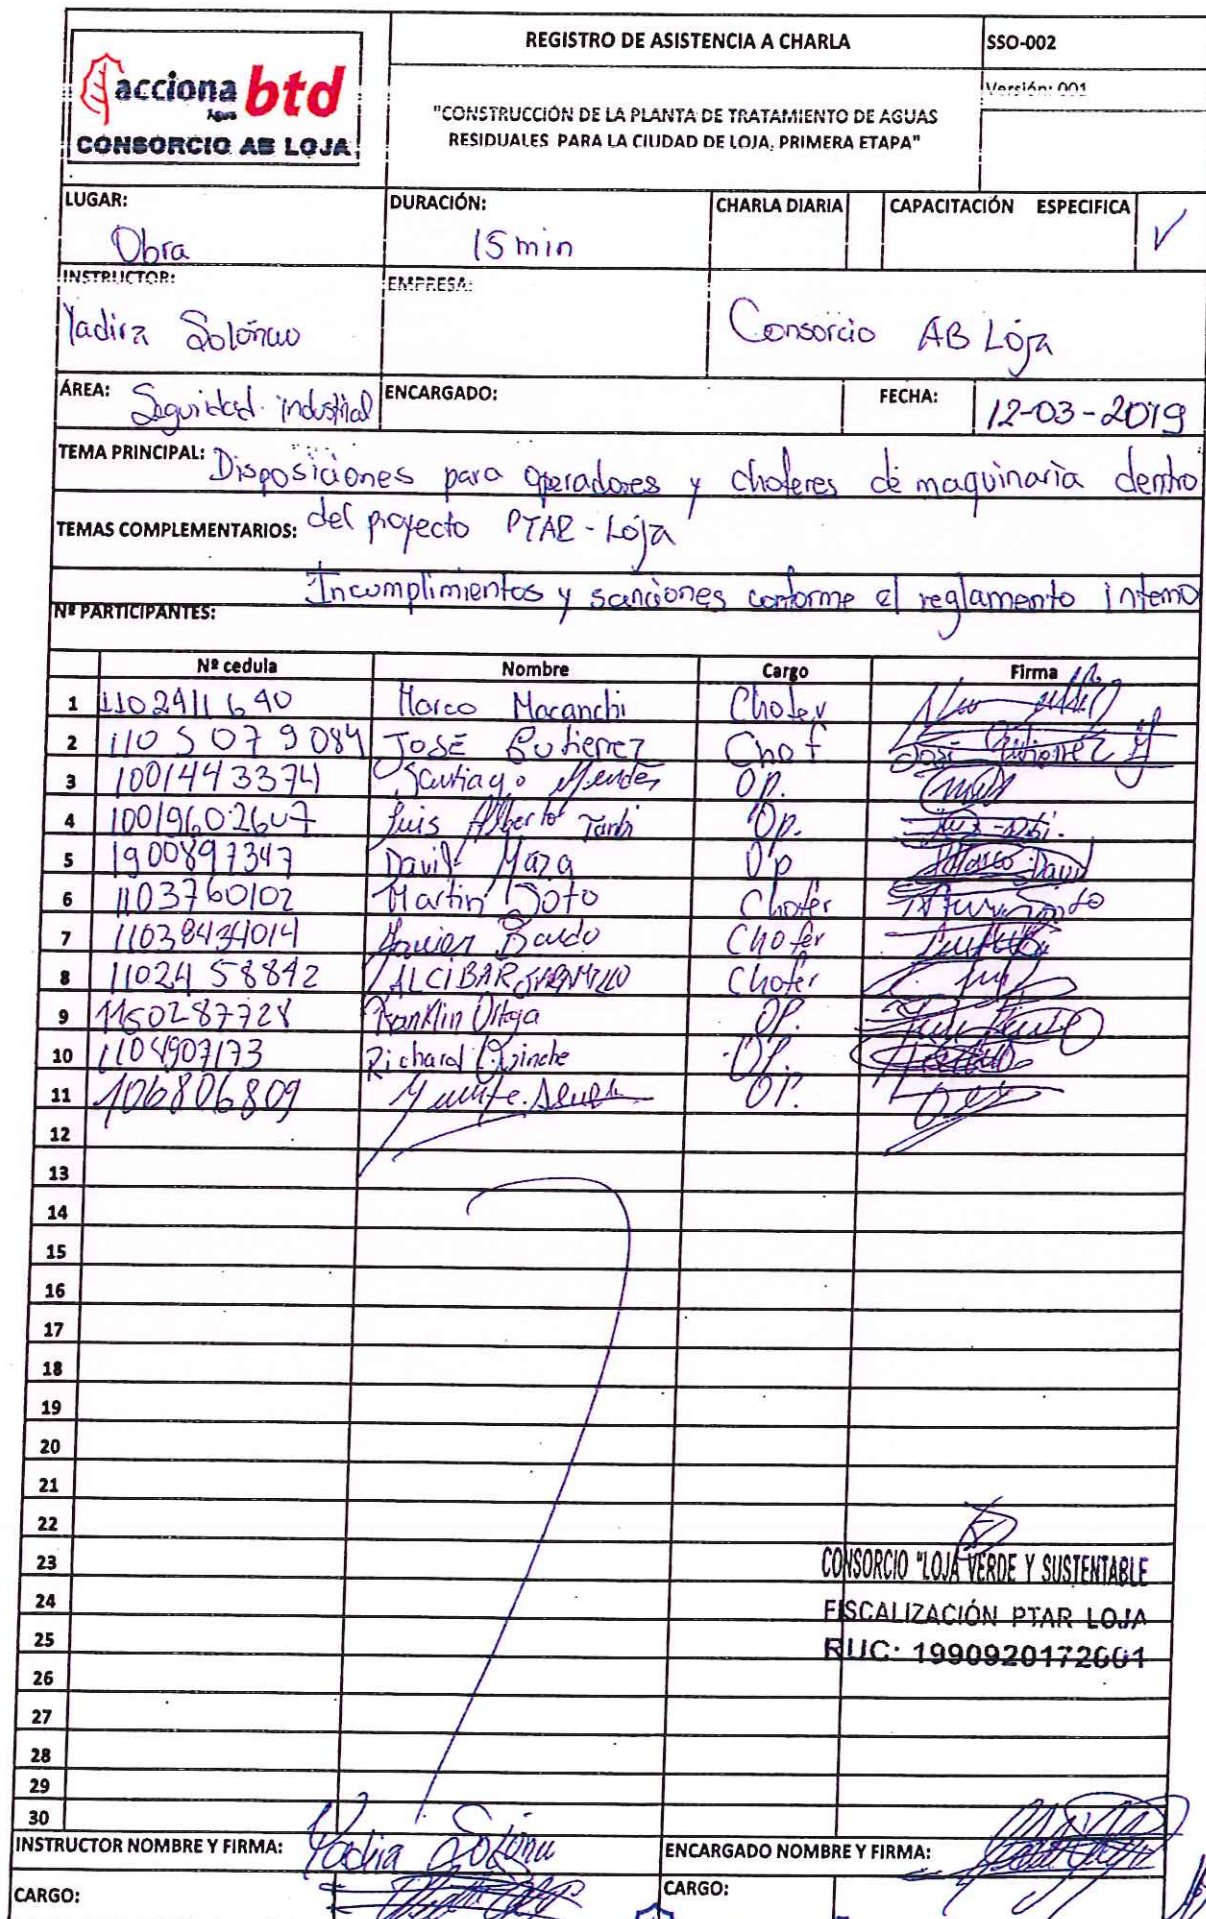 REGISTRO DE ASISTENCIA A CHARLA
SSO-002
Versión: 001
acciona btd
Agua
CONSORCIO AB LOJA
"CONSTRUCCIÓN DE LA PLANTA DE TRATAMIENTO DE AGUAS
RESIDUALES PARA LA CIUDAD DE LOJA, PRIMERA ETAPA"
LUGAR: Obra
DURACIÓN: 15 min
CHARLA DIARIA
CAPACITACIÓN ESPECIFICA ✓
INSTRUCTOR: Yadira
EMPRESA: Consorcio AB Loja
ÁREA: Seguridad industrial
ENCARGADO:
FECHA: 12-03-2019
TEMA PRINCIPAL: Disposiciones para operadores y choferes de maquinaria dentro
del proyecto PTAR-Loja
TEMAS COMPLEMENTARIOS:
Incumplimientos y sanciones conforme el reglamento interno
Nº PARTICIPANTES:
Nº cedula Nombre Cargo Firma
1 1102411640 Marco Macanchi Chofer
2 1105079084 JOSE Gutierrez Chof José Gutierrez
3 1001443374 Santiago Mendes Op.
4 Luis Alberto Op.
5 1900897347 David Maza Op
6 1103760102 Martin Soto Chofer
7 Chofer
8 1102458842 ALCIBAR JARAMILLO Chofer
9 1150287728 Franklin Ortega OP.
10 1104907173 Richard Quinche OP.
11 OP.
12
13
14
15
16
17
18
19
20
21
22
23
24
25
26
27
28
29
30
CONSORCIO "LOJA VERDE Y SUSTENTABLE
FISCALIZACIÓN PTAR LOJA
RUC: 1990920172001
INSTRUCTOR NOMBRE Y FIRMA:
ENCARGADO NOMBRE Y FIRMA:
CARGO:
CARGO: